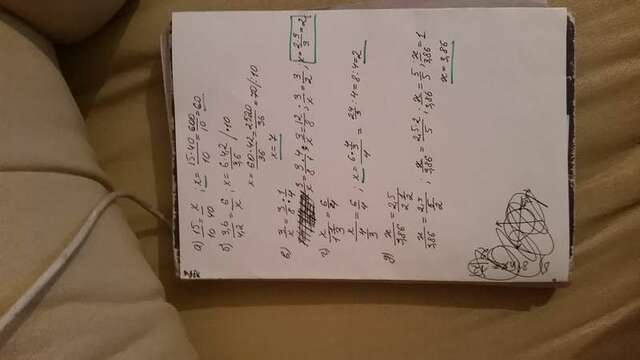 а) 15/10 = x/40 ; x = 15·40/10 = 600/10 = 60
б) 3,6/4,2 = 6/x ; x = 6·4,2/3,6 /·10
x = 60·42/36 = 2520/36 = 70/:10
x = 7
в) 3/x = 3/8 : 1/4
3/x = 3/8 · 4/1 ; 3/x = 12/8 ; 3/x = 3/2 ; x = 2·3/3 = 2
г) x/1 1/3 = 6/4
x/4/3 = 6/4 ; x = 6·4/3/4 = 24/3 : 4 = 8 : 4 = 2
д) x/3,86 = 2,5/2 1/2
x/3,86 = 2,5/5/2 ; x/3,86 = 2,5·2/5 ; x/3,86 = 5/5 ; x/3,86 = 1
x = 3,86